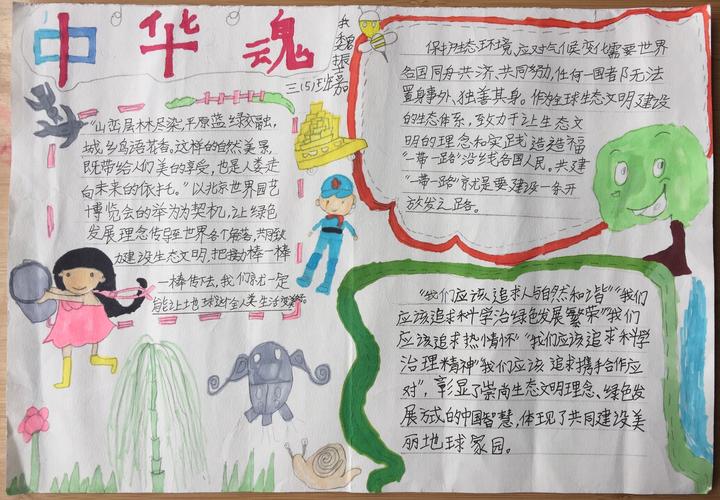 中华魂
三(5)班
魏振嘉
“山峦层林尽染,平原蓝绿交融,
城乡鸟语花香。这样的自然美景,
既带给人们美的享受,也是人类走
向未来的依托。”以北京世界园艺
博览会的举为为契机,让绿色
发展理念传导至世界各个角落,共同致
力建设生态文明,把接力棒一棒
一棒传下去,我们就一定
能让地球
保护生态环境,应对气候变化需要世界
各国同舟共济、共同努力,任何一国都无法
置身事外、独善其身。作为全球生态文明建设
的生态体系,致力于让生态文
明的理念和实践造造福
“一带一路”沿线各国人民。共建
“一带一路”就是要建设一条开
放发之路。
“我们应该追求人与自然和谐”“我们
应该追求科学治绿色发展繁荣”我们
应该追求热情怀”“我们应该追求科学
治理精神”我们应该追求携手合作应
对”,彰显了崇尚生态文明理念、绿色发
展方式的中国智慧,体现了共同建设美
丽地球家园。